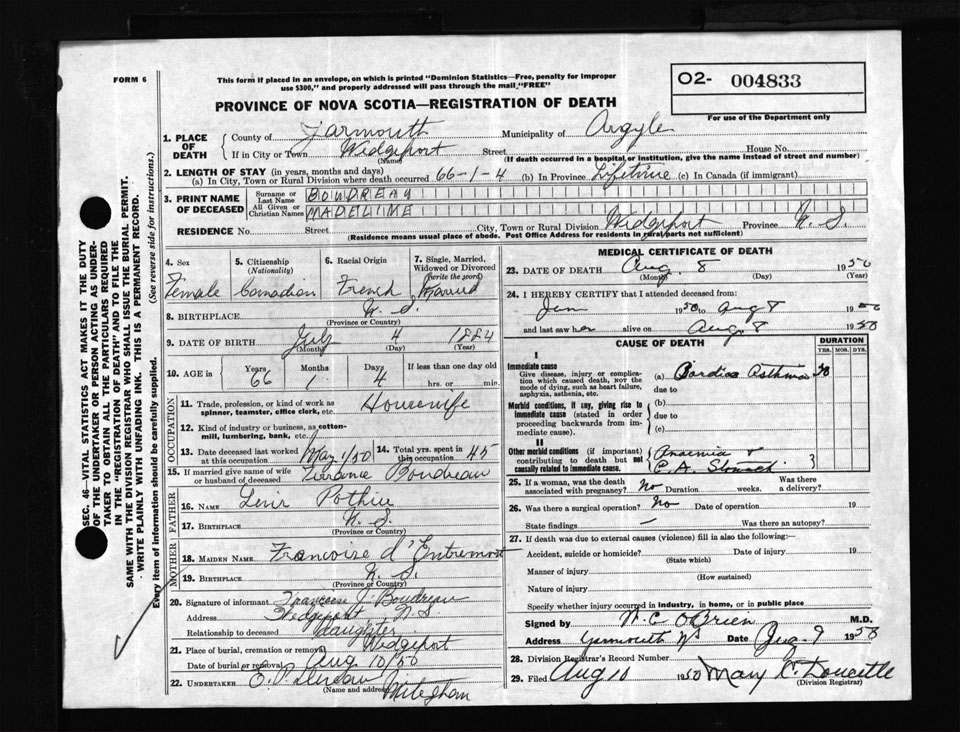 FORM 6
This form if placed in an envelope, on which is printed "Dominion Statistics—Free, penalty for improper
use $300," and properly addressed will pass through the mail "FREE"
O2- 004833
For use of the Department only
PROVINCE OF NOVA SCOTIA—REGISTRATION OF DEATH
SEC. 46—VITAL STATISTICS ACT MAKES IT THE DUTY
OF THE UNDERTAKER OR PERSON ACTING AS UNDER-
TAKER TO OBTAIN ALL THE PARTICULARS REQUIRED
IN THE "REGISTRATION OF DEATH" AND TO FILE THE
SAME WITH THE DIVISION REGISTRAR WHO SHALL ISSUE THE BURIAL PERMIT.
WRITE PLAINLY WITH UNFADING INK. THIS IS A PERMANENT RECORD.
Every item of information should be carefully supplied. (See reverse side for instructions.)
1. PLACE OF DEATH County of Yarmouth Municipality of Argyle
If in City or Town Wedgeport Street House No.
(Name) (If death occurred in a hospital or institution, give the name instead of street and number)
2. LENGTH OF STAY (in years, months and days)
(a) In City, Town or Rural Division where death occurred 66-1-4 (b) In Province Lifetime (c) In Canada (if immigrant)
3. PRINT NAME OF DECEASED Surname or Last Name BOUDREAU
All Given or Christian Names MADELINE
RESIDENCE No. Street City, Town or Rural Division Wedgeport Province N. S.
(Residence means usual place of abode. Post Office Address for residents in rural parts not sufficient)
4. Sex 5. Citizenship (Nationality) 6. Racial Origin 7. Single, Married, Widowed or Divorced (write the word)
Female Canadian French Married
8. BIRTHPLACE N. S.
(Province or Country)
9. DATE OF BIRTH July 4 1884
(Month) (Day) (Year)
10. AGE in Years Months Days If less than one day old
66 1 4 hrs. or min.
OCCUPATION
11. Trade, profession, or kind of work as spinner, teamster, office clerk, etc. Housewife
12. Kind of industry or business, as cotton-mill, lumbering, bank, etc.
13. Date deceased last worked at this occupation May 1/50 14. Total yrs. spent in this occupation 45
15. If married give name of wife or husband of deceased Boudreau
FATHER
16. Name Pothier
17. Birthplace N. S.
(Province or Country)
MOTHER
18. Maiden Name Francoise d'Entremont
19. Birthplace N. S.
(Province or Country)
20. Signature of informant Francoise J. Boudreau
Address Wedgeport N S
Relationship to deceased daughter
21. Place of burial, cremation or removal Wedgeport
Date of burial or removal Aug 10/50
22. Undertaker
(Name and address) Meteghan
MEDICAL CERTIFICATE OF DEATH
23. DATE OF DEATH Aug. 8 1950
(Month) (Day) (Year)
24. I HEREBY CERTIFY that I attended deceased from:
Jan 1950 to Aug 8 1950
and last saw her alive on Aug. 8 1950
CAUSE OF DEATH DURATION
YRS. MOS. DYS.
I
Immediate cause
Give disease, injury or complication which caused death, NOT the mode of dying, such as heart failure, asphyxia, asthenia, etc.
(a) Cardiac Asthma
due to
Morbid conditions, if any, giving rise to immediate cause (stated in order proceeding backwards from immediate cause).
(b)
due to
(c)
II
Other morbid conditions (if important) contributing to death but not causally related to immediate cause.
Anaemia &
C.A. Stomach
25. If a woman, was the death associated with pregnancy? No Duration weeks. Was there a delivery?
26. Was there a surgical operation? No Date of operation 19
State findings — Was there an autopsy?
27. If death was due to external causes (violence) fill in also the following:—
Accident, suicide or homicide? Date of injury 19
(State which)
Manner of injury
(How sustained)
Nature of injury
Specify whether injury occurred in industry, in home, or in public place
Signed by W. C. O'Brien M.D.
Address Yarmouth NS Date Aug. 9 1950
28. Division Registrar's Record Number
29. Filed Aug 10 1950 Mary C. Doucette
(Division Registrar)